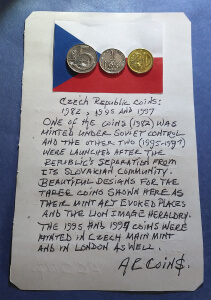 Czech Republic Coins:
1982, 1995 and 1997
One of the coins (1982) was
minted under Soviet control
and the other two (1995-1997)
were launched after the
Republic's separation from
its Slovakian community.
Beautiful designs for the
three coins shown here as
their mint art evoked places
and the lion image heraldry.
The 1995 and 1997 coins were
minted in Czech main mint
and in London as well.
AC Coin$.